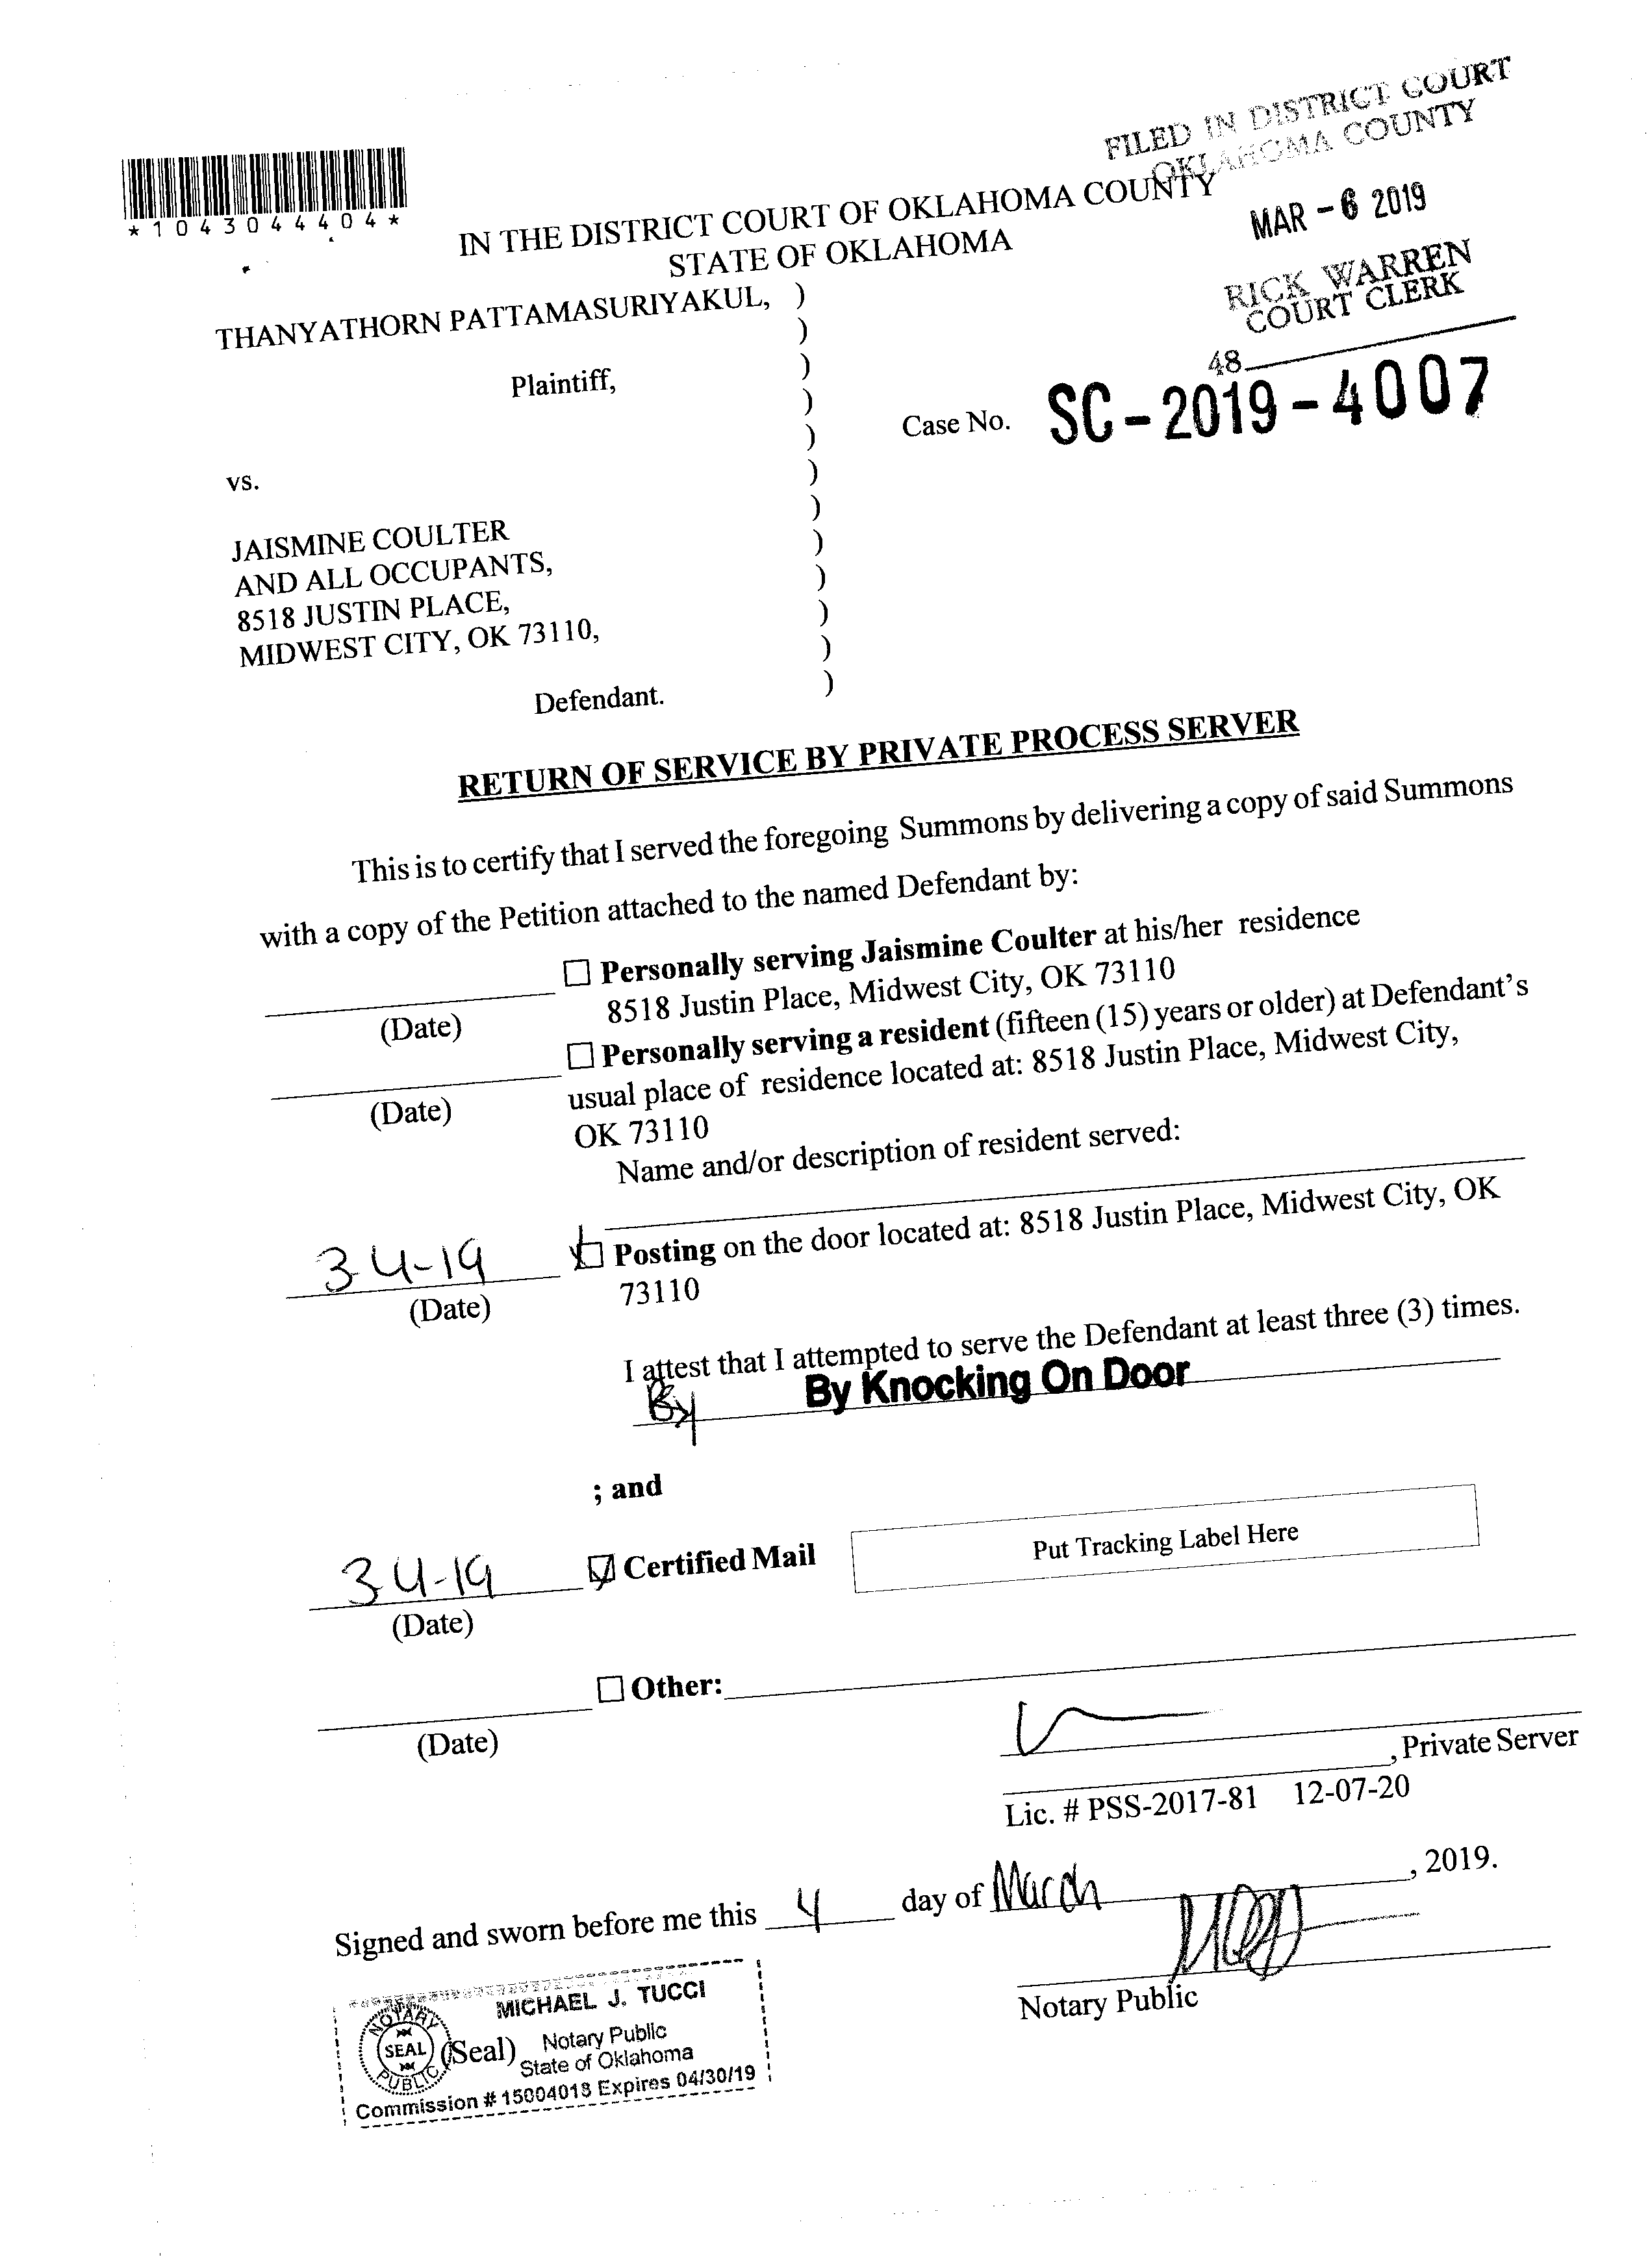 FILED IN DISTRICT COURT
OKLAHOMA COUNTY
MAR - 6 2019
RICK WARREN
COURT CLERK
48
*1043044404*
IN THE DISTRICT COURT OF OKLAHOMA COUNTY
STATE OF OKLAHOMA
THANYATHORN PATTAMASURIYAKUL, )
)
Plaintiff, )
)
Case No. SC-2019-4007
)
vs. )
)
JAISMINE COULTER )
AND ALL OCCUPANTS, )
8518 JUSTIN PLACE, )
MIDWEST CITY, OK 73110, )
Defendant. )
RETURN OF SERVICE BY PRIVATE PROCESS SERVER
This is to certify that I served the foregoing Summons by delivering a copy of said Summons
with a copy of the Petition attached to the named Defendant by:
☐ Personally serving Jaismine Coulter at his/her residence
(Date) 8518 Justin Place, Midwest City, OK 73110
☐ Personally serving a resident (fifteen (15) years or older) at Defendant's
(Date) usual place of residence located at: 8518 Justin Place, Midwest City,
OK 73110
Name and/or description of resident served:
3-4-19 ☒ Posting on the door located at: 8518 Justin Place, Midwest City, OK
(Date) 73110
I attest that I attempted to serve the Defendant at least three (3) times.
By By Knocking On Door
; and
3-4-19 ☑ Certified Mail Put Tracking Label Here
(Date)
☐ Other:
(Date)
, Private Server
Lic. # PSS-2017-81 12-07-20
Signed and sworn before me this 4 day of March, 2019.
Notary Public
NOTARY
SEAL
PUBLIC
(Seal)
MICHAEL J. TUCCI
Notary Public
State of Oklahoma
Commission # 15004018 Expires 04/30/19